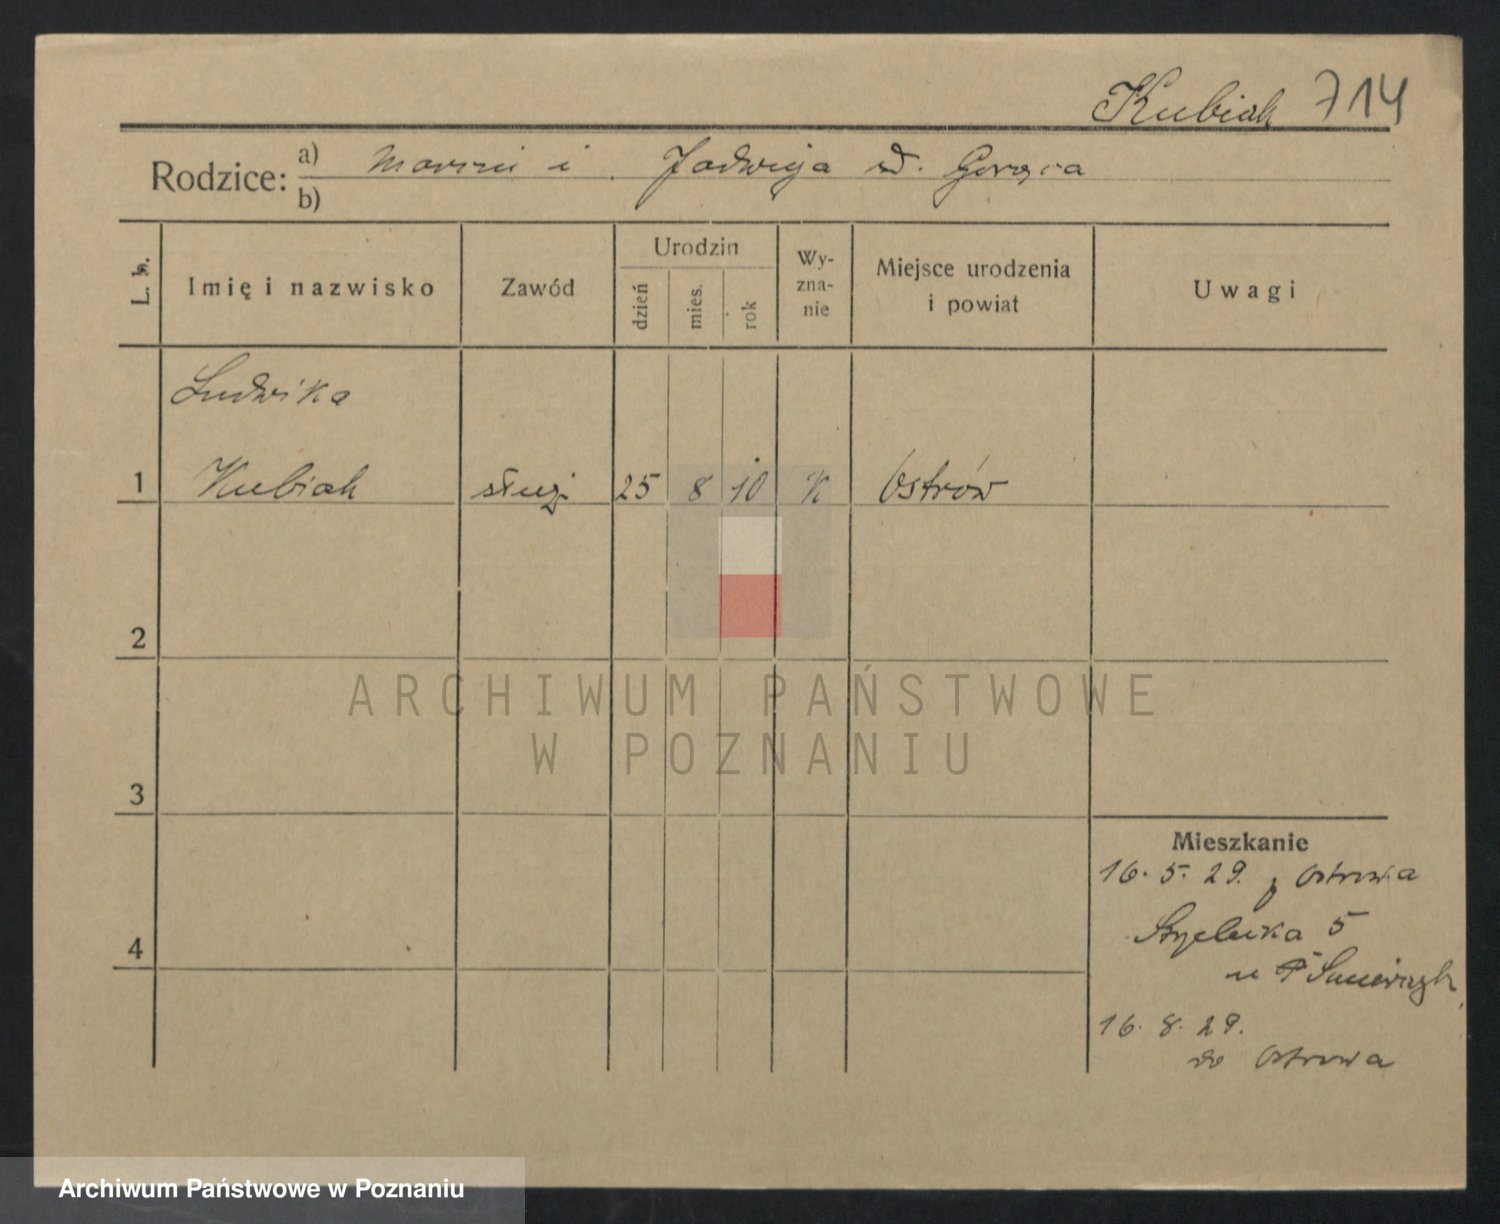 Kubiak 714
Rodzice: a) Marcin i Jadwiga d. Gorąca
b)
L. b.
Imię i nazwisko
Zawód
Urodzin
dzień
mies.
rok
Wy-
zna-
nie
Miejsce urodzenia
i powiat
Uwagi
Ludwika
1 Kubiak służ. 25 8 10 K Ostrów
2
ARCHIWUM PAŃSTWOWE
W POZNANIU
3
Mieszkanie
16. 5. 29. z Ostrowa
5
4
u
16. 8. 29.
do Ostrowa
Archiwum Państwowe w Poznaniu